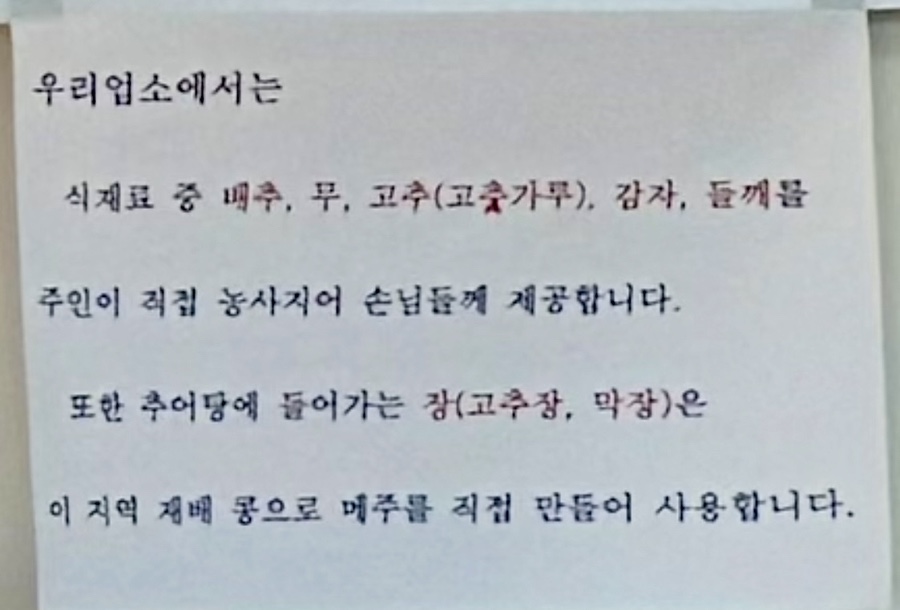 우리업소에서는
식재료 중 배추, 무, 고추(고춧가루), 감자, 들깨를
주인이 직접 농사지어 손님들께 제공합니다.
또한 추어탕에 들어가는 장(고추장, 막장)은
이 지역 재배 콩으로 메주를 직접 만들어 사용합니다.